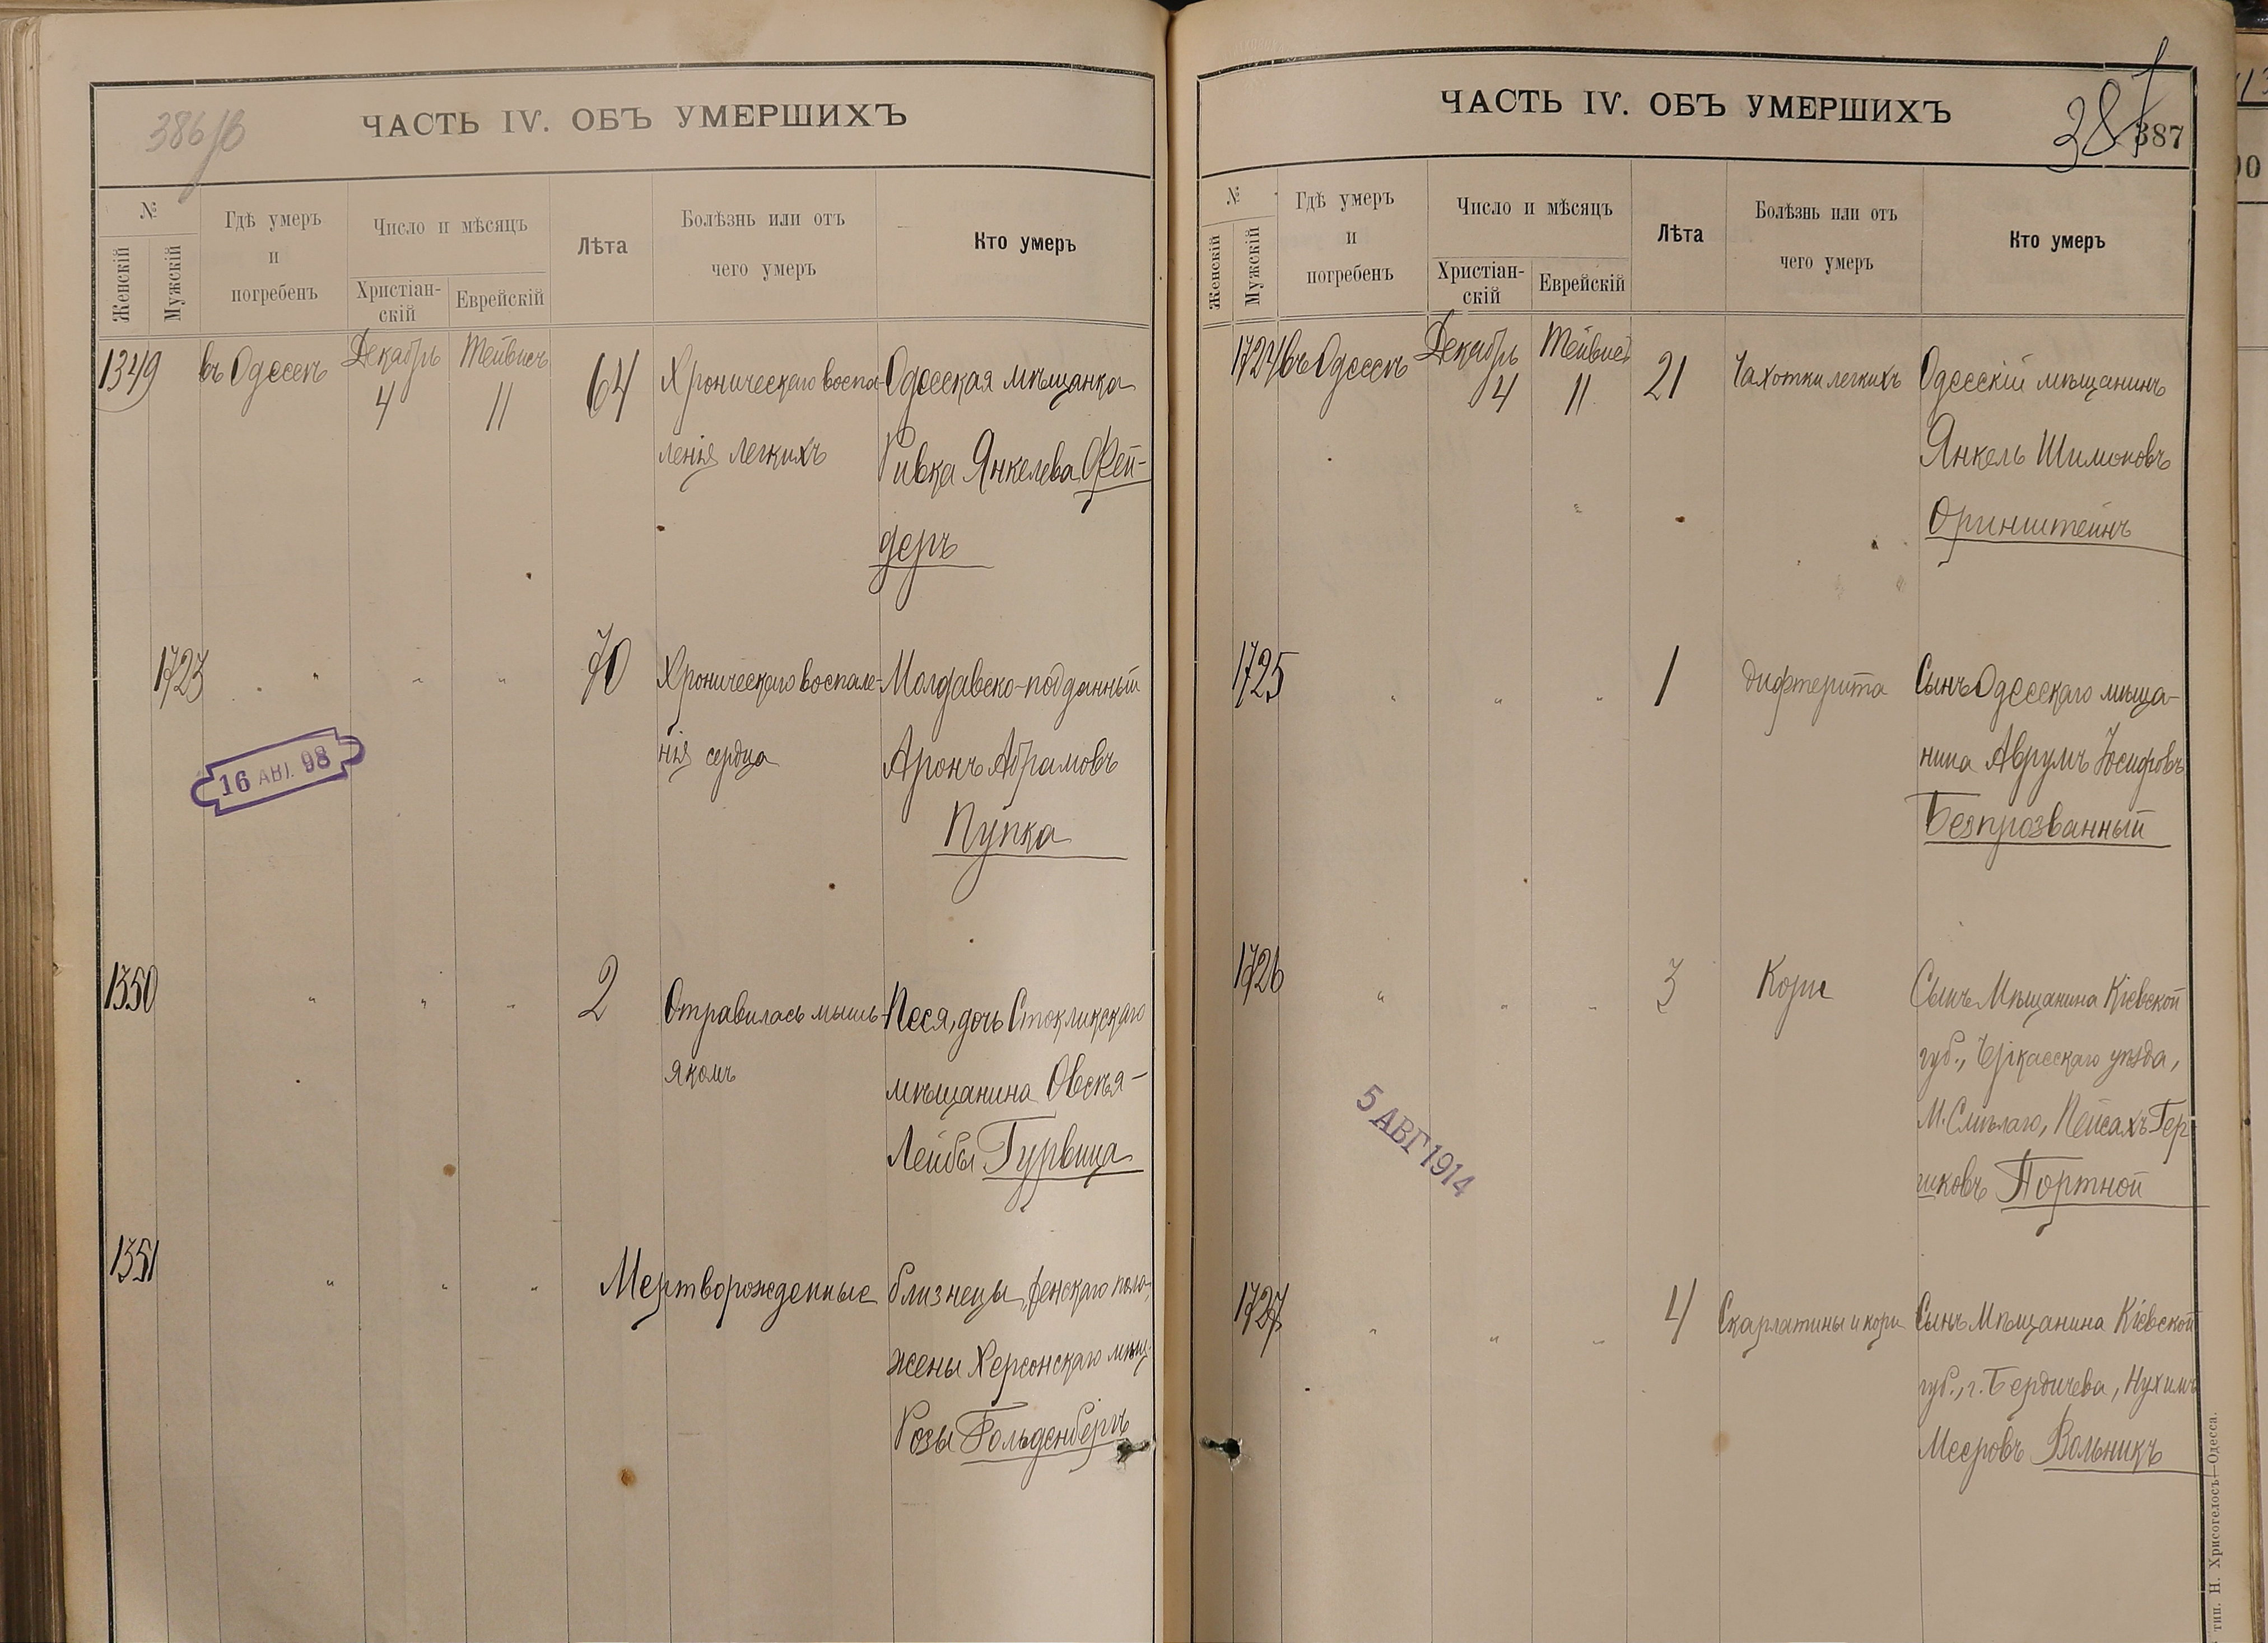 386/б
ЧАСТЬ IV. ОБЪ УМЕРШИХЪ
№
Женскій
Мужскій
Гдѣ умеръ
и
погребенъ
Число и мѣсяцъ
Христіан-
скій
Еврейскій
Лѣта
Болѣзнь или отъ
чего умеръ
Кто умеръ
1349 въ Одессѣ Декабрь Тейвисъ 64 Хроническаго воспа- Одесская мѣщанка
4 11
ленія легкихъ Ривка Янкелева Фей-
деръ
1723 " " " 70 Хроническаго воспале- Молдавско-подданный
нія сердца Аронъ Абрамовъ
Пупка
16 АВГ. 98
1350 " " " 2 Отравилась мышь- Песя, дочь Стоклискаго
якомъ мѣщанина Овсѣя-
Лейбы Гурвица
1351 " " " Мертворожденные близнецы, женскаго пола,
жены Херсонскаго мѣщ.
Розы Гольденбергъ
ЧАСТЬ IV. ОБЪ УМЕРШИХЪ
387
387
№
Женскій
Мужскій
Гдѣ умеръ
и
погребенъ
Число и мѣсяцъ
Христіан-
скій
Еврейскій
Лѣта
Болѣзнь или отъ
чего умеръ
Кто умеръ
1724 въ Одессѣ Декабрь Тейвисъ 21 Чахотки легкихъ Одесскій мѣщанинъ
4 11
Янкель Шимоновъ
Оринштейнъ
1725 " " " 1 Дифтерита Сынъ Одесскаго мѣща-
нина Аврумъ Іосифовъ
Безпрозванный
1726 " " " 3 Кори Сынъ Мѣщанина Кіевской
губ., Черкасскаго уѣзда,
М. Смѣлаго, Пейсахъ Гер-
шковъ Портной
5 АВГ 1914
1727 " " " 4 Скарлатины и кори Сынъ Мѣщанина Кіевской
губ., г. Бердичева, Нухимъ
Мееровъ Вольникъ
тип. Н. Хрисогелосъ—Одесса.